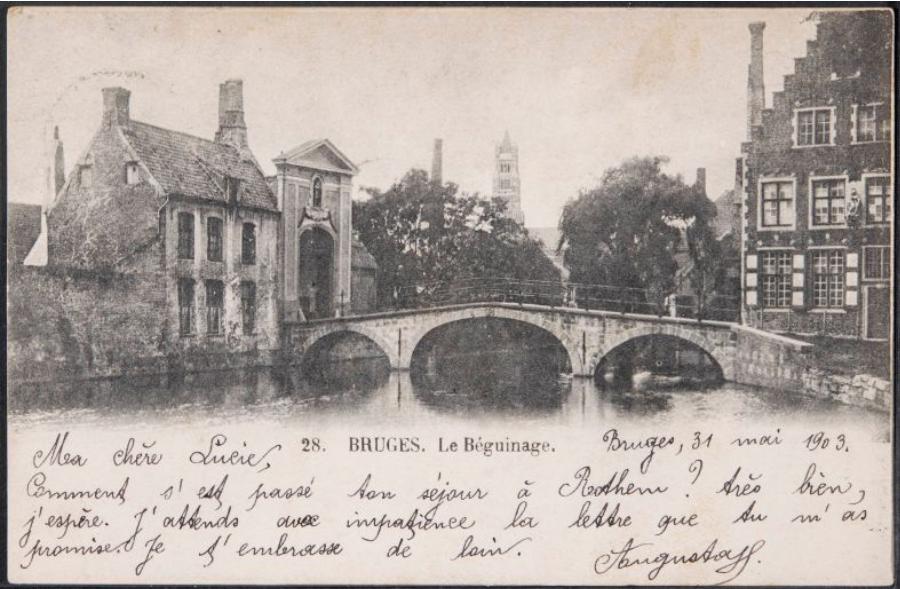 28. BRUGES. Le Béguinage.
Bruges, 31 mai 1903.
Ma chère Lucie,
Comment s'est passé ton séjour à Rothem? très bien,
j'espère. J'attends avec impatience la lettre que tu m'as
promise. Je t'embrasse de loin.